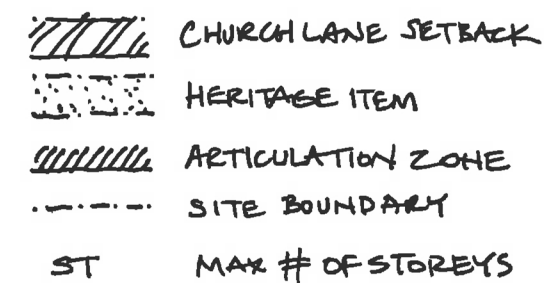 CHURCH LANE SETBACK
HERITAGE ITEM
ARTICULATION ZONE
SITE BOUNDARY
ST MAX # OF STOREYS